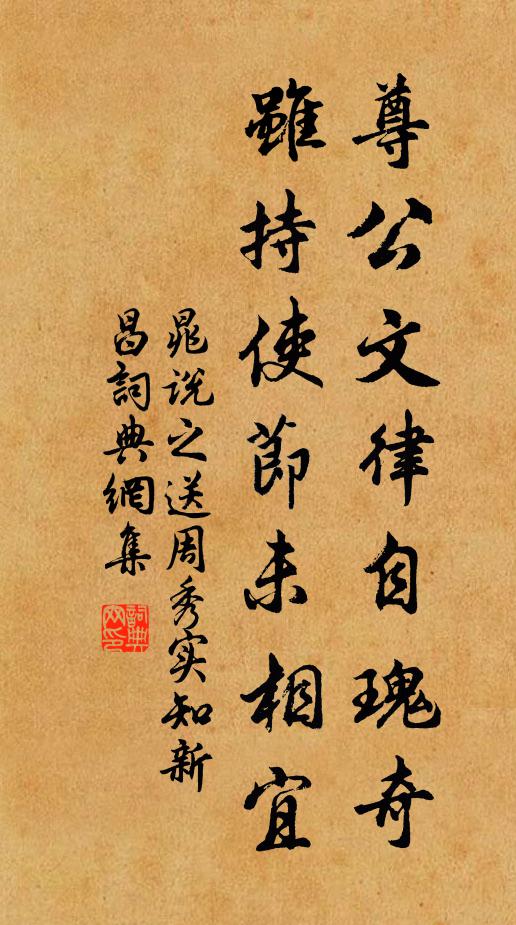 尊公文律自瑰奇
雖持使節未相宜
晁說之送周秀实知新
昌詞典網集
詞典
网印